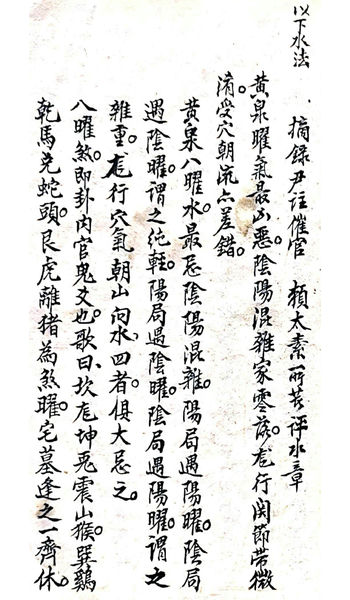 以下水法
摘錄尹註催官 賴太素所著評水章
黄泉曜氣最凶惡。陰陽混雜家零落。尨行関節带微
淆。受穴朝流亦差錯。
黄泉八曜水。最忌陰陽混雜。陽局遇陽曜。陰局
遇陰曜。謂之純輕。陽局遇陰曜。陰局遇陽曜。謂之
雜重。尨行穴氣朝山向水。四者。俱大忌之。
八曜煞。即卦内官鬼爻也。歌曰、坎尨坤兎震山猴。巽鷄
乾馬兌蛇頭。艮虎離猪為煞曜。宅墓逢之一齊休。